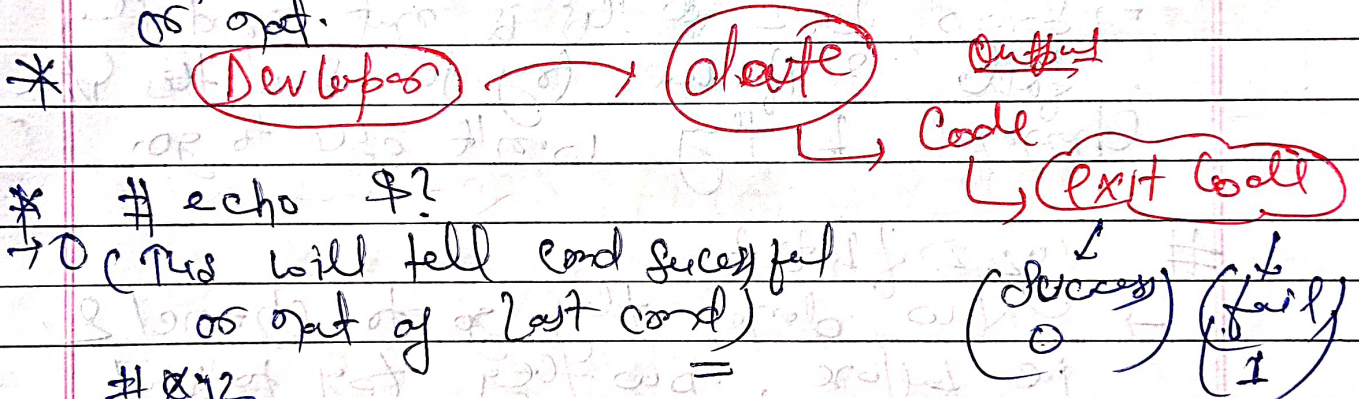 or not.
* Devloper → date Output
↳ Code
↳ exit code
* # echo $?
→ 0 (This will tell cmd sucessful
or not of last cmd)
(Success 0) (fail 1)
# xyz